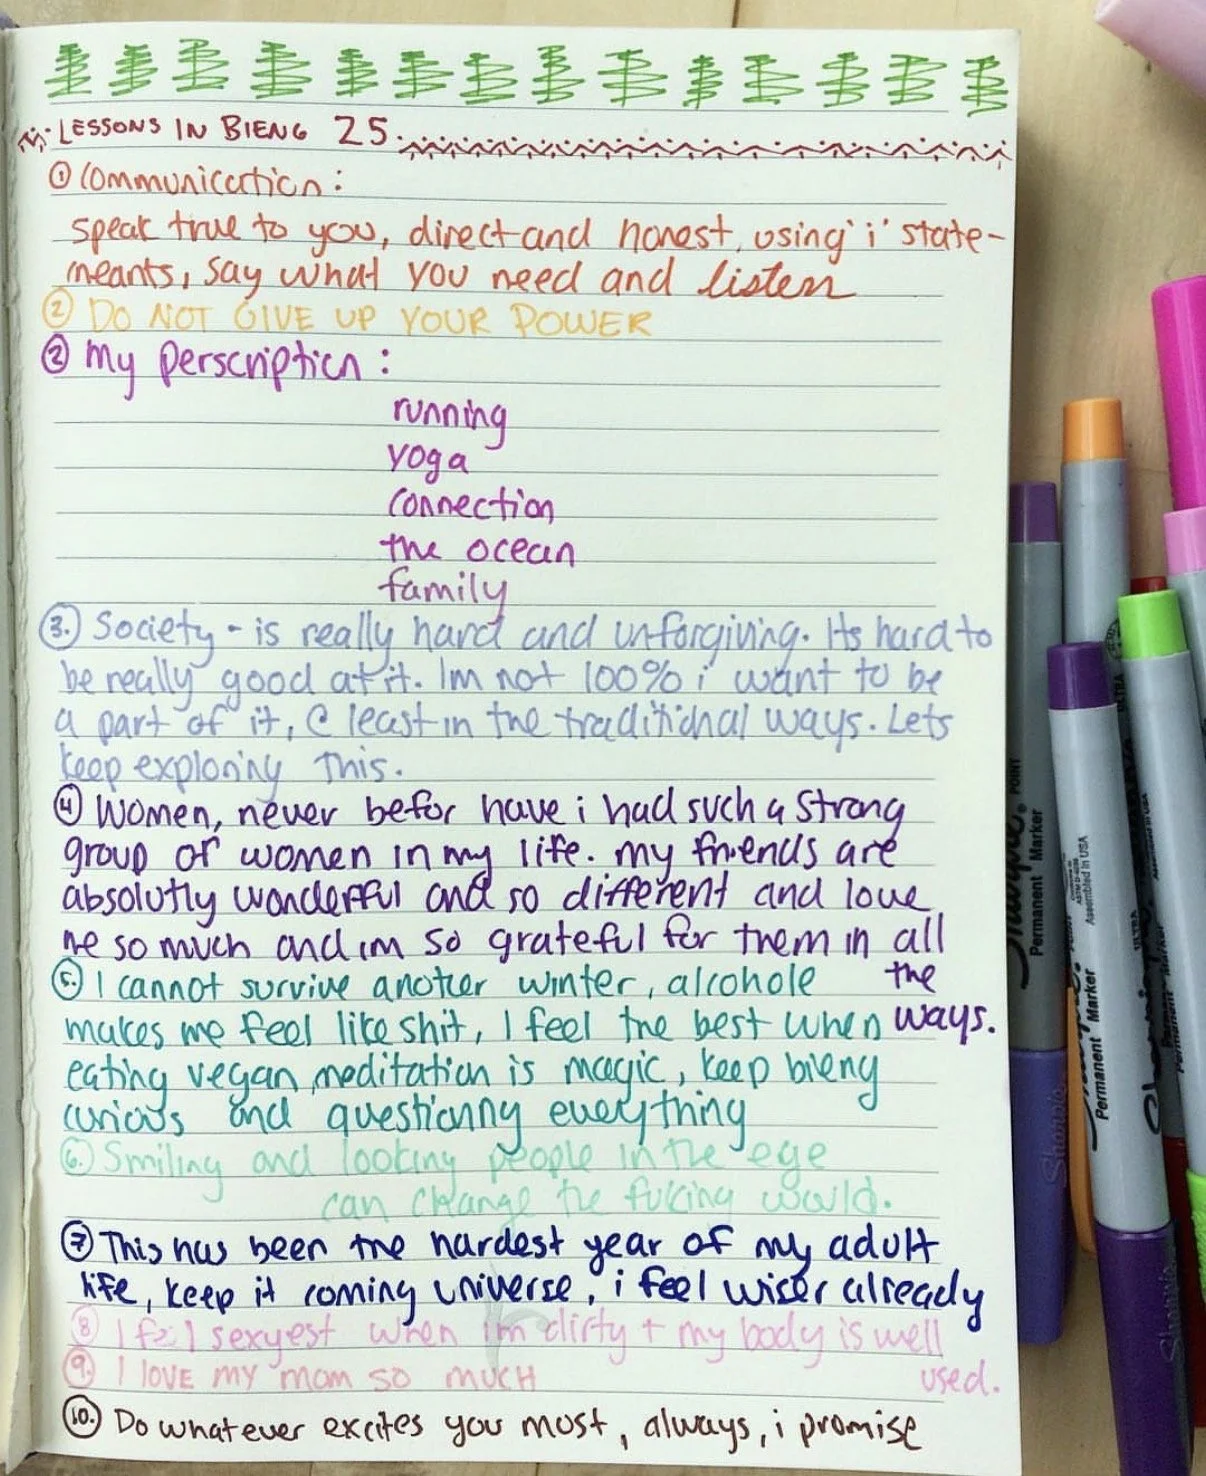 LESSONS IN BIENG 25.
① Communication:
speak true to you, direct and honest, using 'i' state-
meants, say what you need and listen
② DO NOT GIVE UP YOUR POWER
② my perscription:
running
yoga
connection
the ocean
family
③. Society - is really hard and unforgiving. Its hard to
be really good at it. Im not 100% i want to be
a part of it, @ least in the traditional ways. Lets
keep exploring this.
④ Women, never befor have i had such a strong
group of women in my life. my friends are
absolutly wonderful and so different and love
me so much and im so grateful for them in all
the
ways.
⑤. I cannot survive another winter, alcohole
makes me feel like shit, I feel the best when
eating vegan, meditation is magic, keep bieng
curious and questioning everything
⑥. Smiling and looking people in the eye
can change the fuking world.
⑦ This has been the hardest year of my adult
life, keep it coming universe, i feel wiser already
⑧ I feel sexyest when im dirty + my body is well
used.
⑨. I LOVE my mom so much
⑩. Do whatever excites you most, always, i promise
Permanent Marker
POINT
Permanent Marker
Assembled in USA
ULTRA
Sharpie
Sharpie